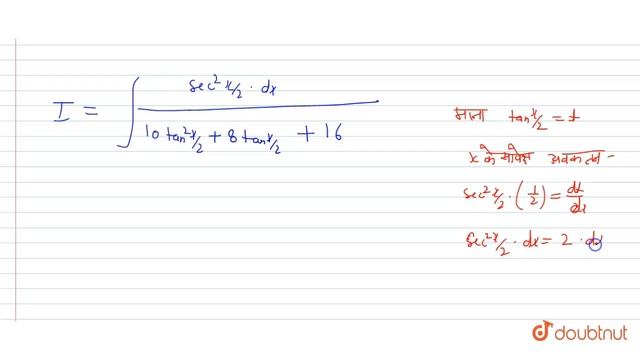 I = ∫ sec² x/2 · dx / 10 tan² x/2 + 8 tan x/2 + 16
माना tan x/2 = t
x के सापेक्ष अवकलन -
sec² x/2 · (1/2) = dt/dx
sec² x/2 · dx = 2 · dt
doubtnut